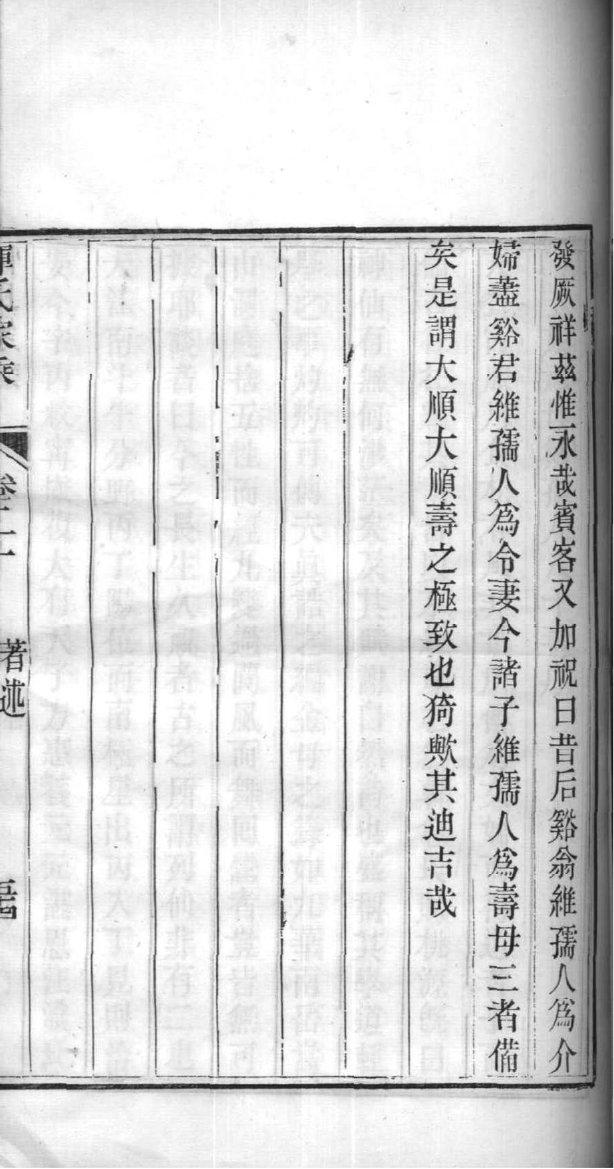 發厥祥茲惟永哉賓客又加祝曰昔后谿翁維孺人爲介
婦藎谿君維孺人爲令妻今諸子維孺人爲壽母三者備
矣是謂大順大順壽之極致也猗歟其迪吉哉
氏家乘
著述